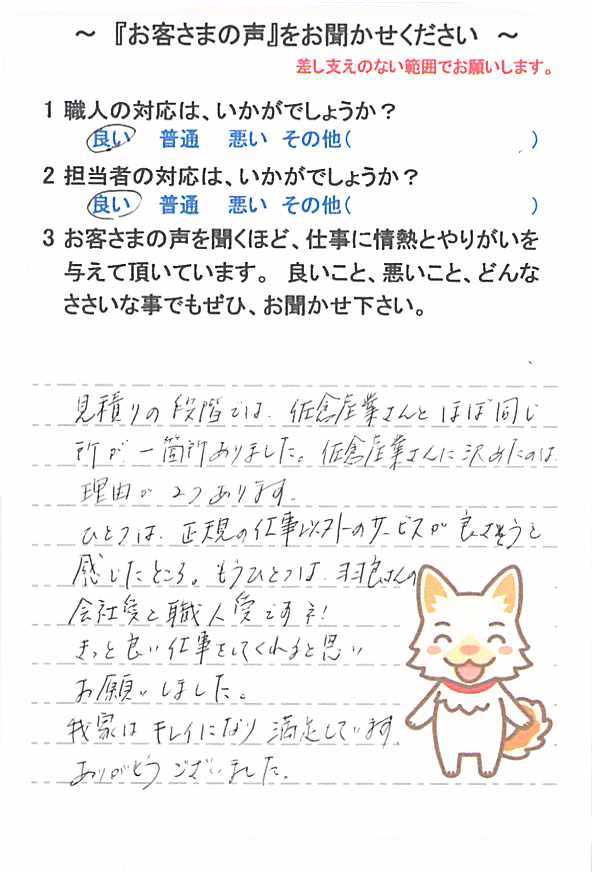 ～ 『お客さまの声』をお聞かせください ～
差し支えのない範囲でお願いします。
1 職人の対応は、いかがでしょうか？
良い 普通 悪い その他( )
2 担当者の対応は、いかがでしょうか？
良い 普通 悪い その他( )
3 お客さまの声を聞くほど、仕事に情熱とやりがいを
与えて頂いています。 良いこと、悪いこと、どんな
ささいな事でもぜひ、お聞かせ下さい。
見積りの段階では、佐倉産業さんとほぼ同じ
所が一箇所ありました。佐倉産業さんに決めたのは
理由が2つあります。
ひとつは、正規の仕事以外のサービスが良さそうと
感じたところ。もうひとつは、羽良さんの
会社愛と職人愛ですネ!
きっと良い仕事をしてくれると思い
お願いしました。
我家はキレイになり満足しています。
ありがとうございました。